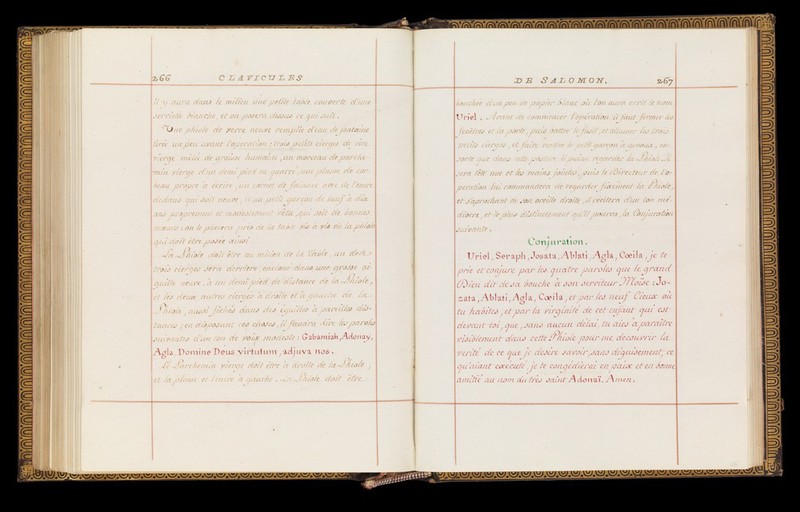 266 CLAVICULES
Il y aura dans le milieu une petite table couverte d'une
serviette blanche, et on posera dessus ce qui suit.
Une phiole de verre neuve remplie d'eau de fontaine
tirée un peu avant l'operation; trois petits cierges de cire
vierge mêlée de graisse humaine; un morceau de parche-
min vierge d'un demi pied en quarré; une plume de cor-
beau propre à écrire; un cornet de faïance avec de l'encre
dedans qui soit neuve; il un petit garcon de neuf à dix
ans proprement et modestement vêtu, qui soit de bonnes
mœurs: on le placera près de la table vis à vis de la phiole
qui doit être posée ainsi.
La Phiole doit être au milieu de la table, un des
trois cierges sera derriere, enclavé dans une grosse ai-
guille neuve, à un demi pied de distance de la Phiole,
et les deux autres cierges à droite et à gauche de la
Phiole, aussi fichés dans des éguilles à pareilles dis-
tances; en disposant ces choses, il faudra dire les paroles
suivantes d'un ton de voix modeste: Gabamiah, Adonay,
Agla, Domine Deus virtutum, adjuva nos.
Le Parchemin vierge doit être à droite de la Phiole;
et la plume et l'encre à gauche. La Phiole doit être
DE SALOMON. 267
bouchée d'un peu de papier blanc où l'on aura écrit le nom
Uriel. Avant de commencer l'opération il faut fermer les
fenêtres et la porte, puis battre le fusil, et allumer les trois
petits cierges, et faire mettre le petit garçon à genoux, en
sorte que dans cette posture il puisse regarder la Phiole. Il
sera tête nue et les mains jointes, puis le Directeur de l'o-
peration lui commandera de regarder fixement la Phiole,
et s'aprochant de son oreille droite, il récitera d'un ton mé-
diocre, et le plus distinctement qu'il pourra, la Conjuration
suivante.
Conjuration.
Uriel, Seraph, Josata, Ablati, Agla, Cœila, je te
prie et conjure par les quatre paroles que le grand
Dieu dit de sa bouche à son serviteur Moïse: Jo-
zata, Ablati, Agla, Cœila, et par les neuf Cieux où
tu habites, et par la virginité de cet enfant qui est
devant toi, que, sans aucun délai, tu aies à paraître
visiblement dans cette Phiole pour me découvrir la
verité de ce que je desire savoir, sans déguisement; ce
qu'aiant exécuté, je te congédierai en paix et en bonne
amitié au nom du très saint Adonaï. Amen.